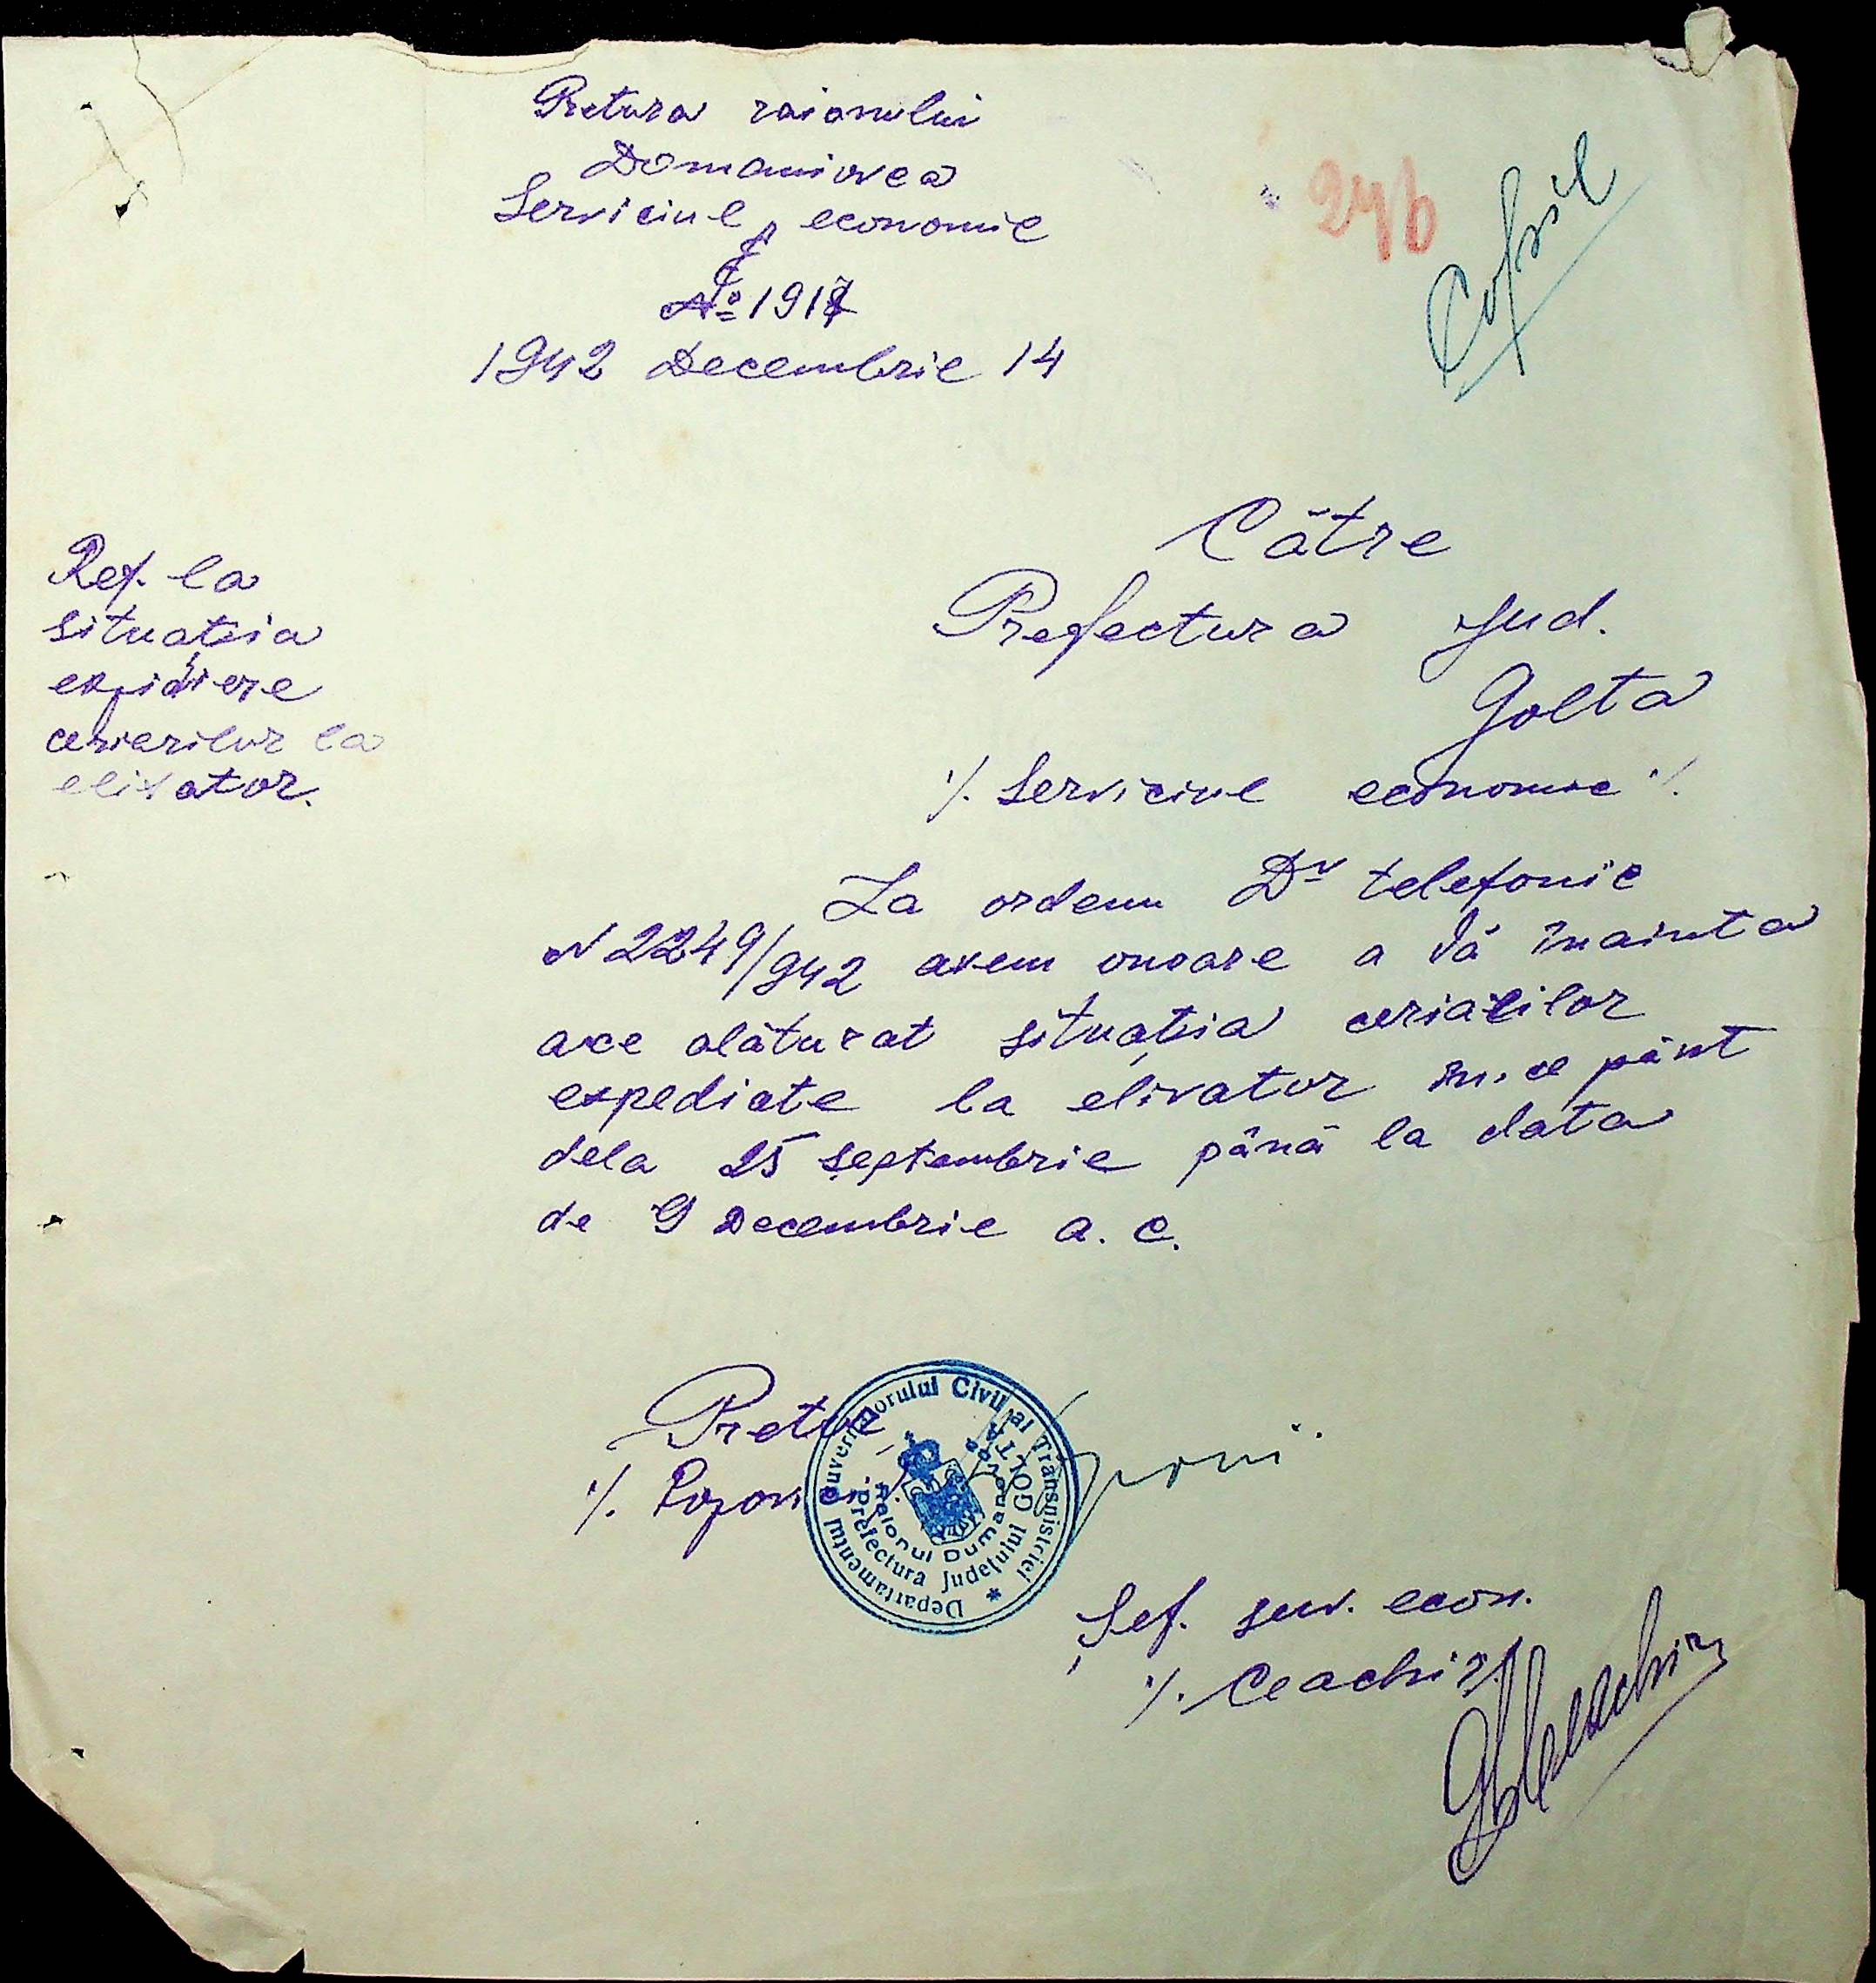 Pretura raionului
Domaniovca
Serviciul economic
№ 1917
1942 Decembrie 14
246
Copil
Către
Prefectura jud.
Golta
·/. Serviciul economic ·/.
Ref. la
situația
expidiere
cerierilor la
elivator.
La ordenu Dv telefonic
N 2249/942 avem onoare a Vă înainta
ace alăturat situația cerialilor
expediate la elivator în ce pânt
dela 25 septembrie până la data
de 9 Decembrie a. c.
Pretor,
·/.
Departamentul Guvernatorului Civil al Transnistriei *
Prefectura Județului GOLTA
Raionul Dumanovca
Șef. serv. econ.
·/. Ceachir